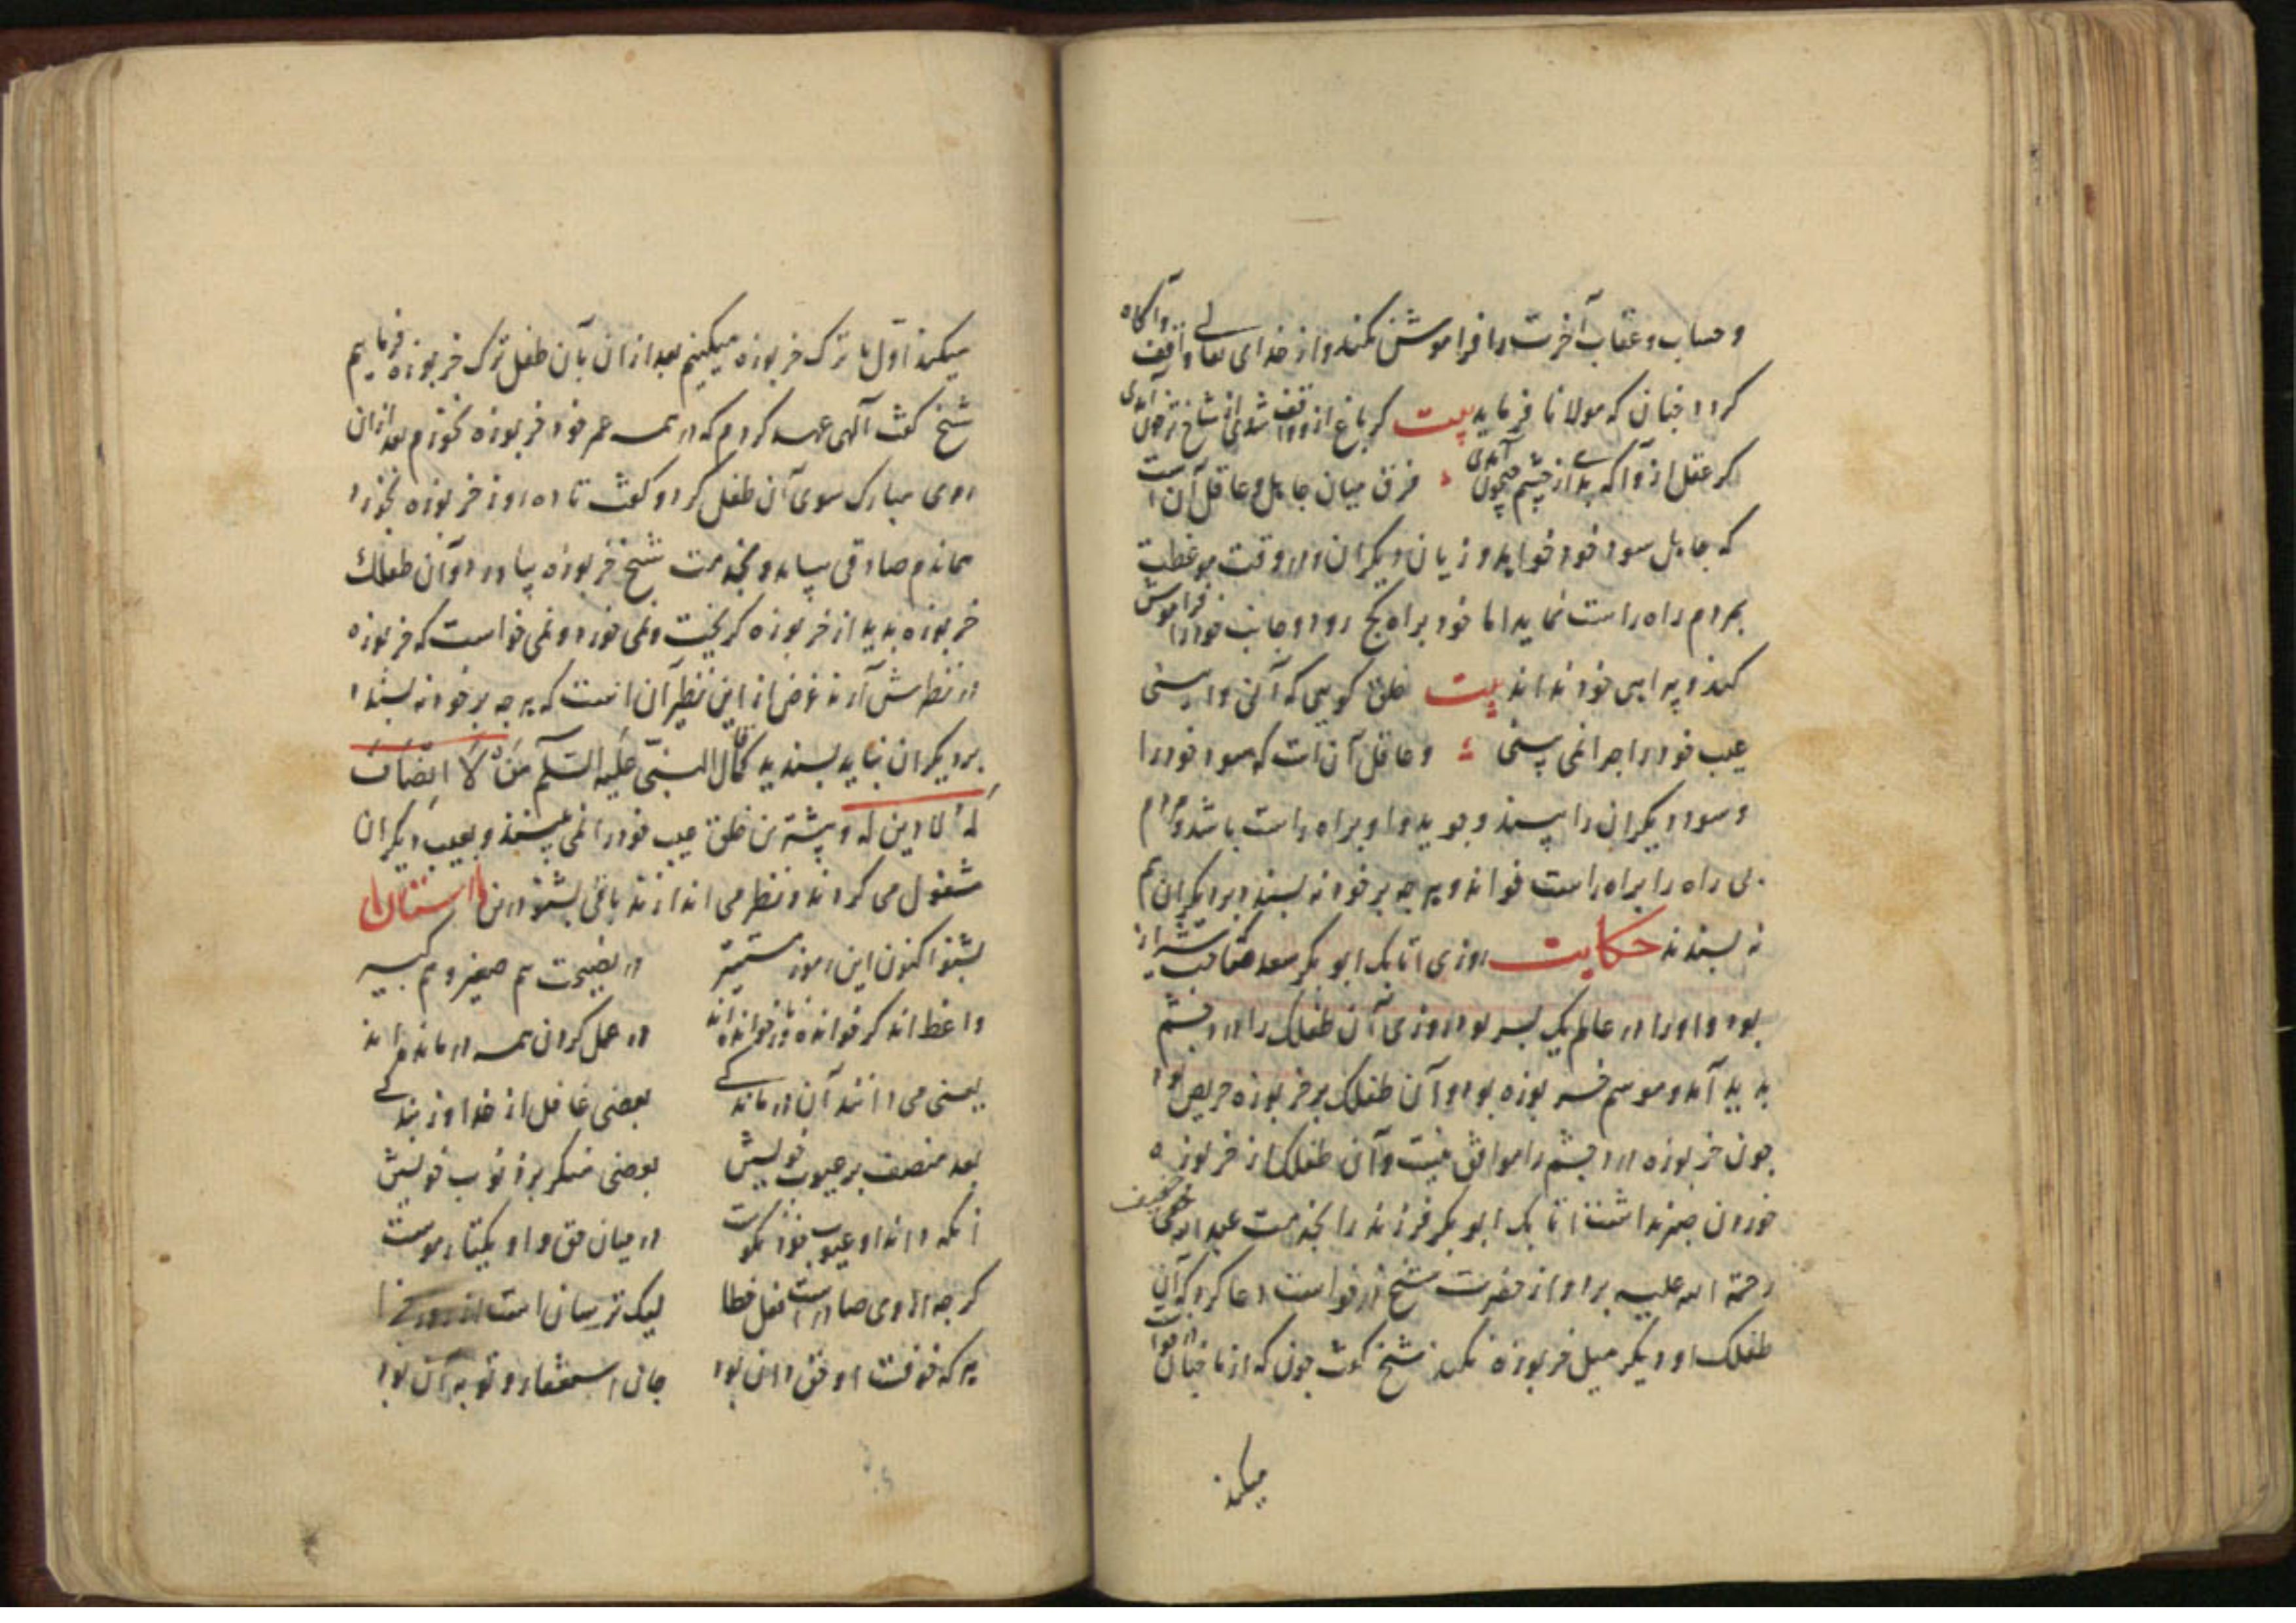 و حساب و عقاب آخرت را فراموش نکند و از خدای تعالی واقف و آگاه
کردد چنان که مولانا فرماید بیت کر باغ ازو واقف شدی از شاخ تر خون آمدی
کر عقل ازو آکه بدی از چشم جیحون آمدی فرق میان جاهل و عاقل آن است
که جاهل سود خود خواهد و زیان دیکران و در وقت موعظت
بمردم راه راست نماید اما خود براه کج رود و جانب خود را فراموش
کند و خود نداند بیت خلق کویی که آن و این
عیب خود را چرا نمی بینی و عاقل آن است که سود خود را
و سود دیکران را بیند و جوید و او براه راست باشد و مردم
بی راه را براه راست خواند و هر چه بر خود نه پسندد بر دیکران هم
نه پسندد حکایت روزی اتابک ابو بکر سعد که صاحب شیراز
بود و او را در عالم یک پسر بود روزی آن طفلک را درد چشم
پدید آمد و موسم خربوزه بود و آن طفلک بر خربوزه حریص بود
چون خربوزه درد چشم را موافق نیست و آن طفلک از خربوزه
خوردن صبر نداشت اتابک ابو بکر فرزند را بخدمت عبد الله خفیف
رحمة الله علیه برد و از حضرت شیخ درخواست دعا کرد که آن
طفلک او دیکر میل خربوزه نکند شیخ کفت چون که از ما چنان درخواست
میکند
میکند اول ما ترک خربوزه میکنیم بعد از ان بآن طفل ترک خربوزه فرماییم
شیخ کفت آلهی عهد کردم که در همه عمر خود خربوزه نخورم بعد از ان
روی مبارک سوی آن طفل کرد و کفت تا ده روز خربوزه نخورد
هماندم صادقی بیامد و بخدمت شیخ خربوزه بیاورد و آن طفلک
خربوزه بدید از خربوزه کریخت و نمی خورد و نمی خواست که خربوزه
در نظرش آرند غرض از این نظیر آن است که هر چه بر خود نه پسندد
بر دیکران نباید پسندید کما قال النبی علیه السلام من لا انصاف
له لا دین له و بیشترین خلق عیب خود را نمی بینند و بعیب دیکران
مشغول می کردند و نظر می اندازند باقی بشنو درین داستان
بشنو اکنون این رموز مستتیر در نصیحت هم صغیر و هم کبیر
واعظ اند کر خوانده و ناخوانده اند در عمل کردن همه درمانده اند
بعضی می دانند آن درماندکی بعضی غافل از خدا و ز بندکی
بعد منصف بر عیوب خویش بعضی منکر بر ذنوب خویش
آنکه داند او عیوب خود نکوست در میان حق و او یکتا رموست
کر چه از وی صادر است فعل خطا لیک ترسان است از
هر که خوفت او حق دان بود جای استغفار و توبه آن بود